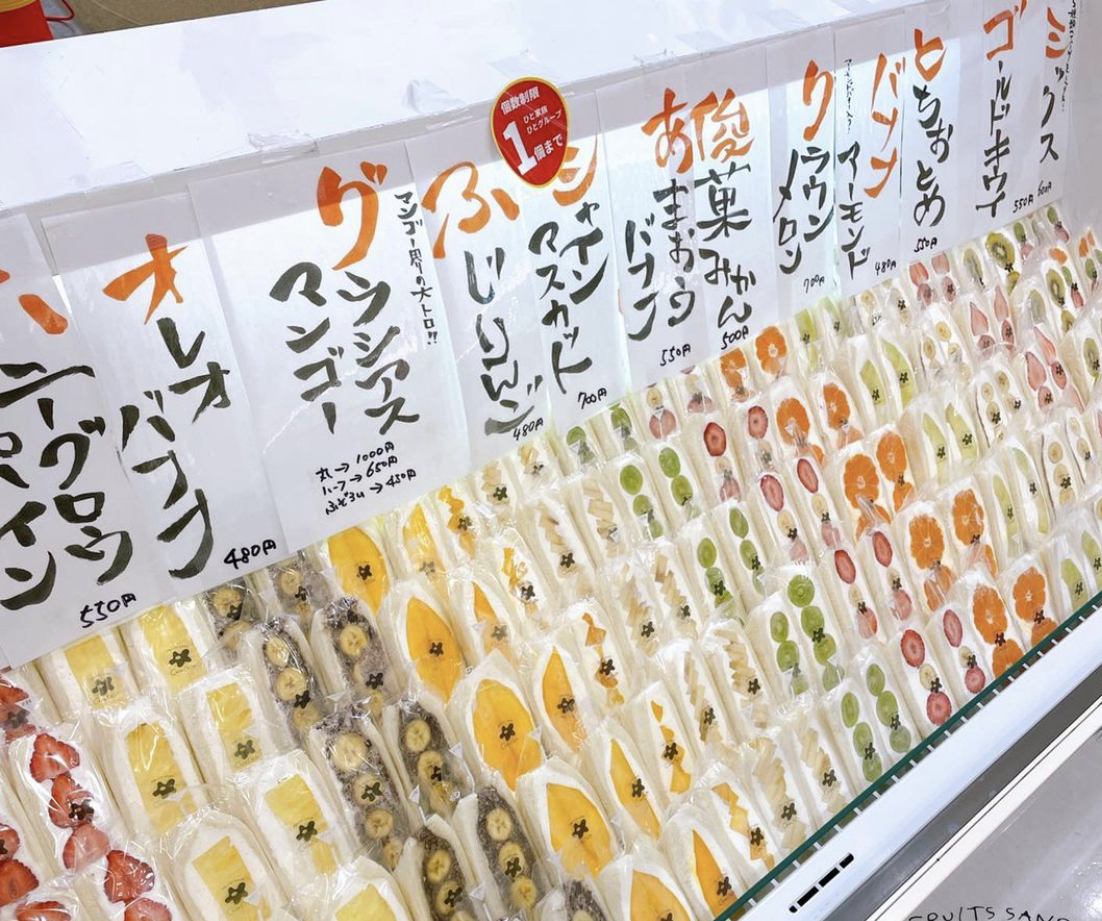 ハニーグロウ
パイン
550円
オレオ
バナナ
480円
マンゴー界の大トロ!!
グラシアス
マンゴー
丸→1000円
ハーフ→650円
ふぞろい→450円
ふじりんご
480円
個数制限
ひと家族
ひとグループ
1個まで
シャイン
マスカット
700円
あまおう
バナナ
550円
俊菓みかん
500円
クラウン
メロン
700円
バナナ
アーモンド
480円
とちおとめ
550円
ゴールドキウイ
550円
ミックス
600円
FRUITS SAND